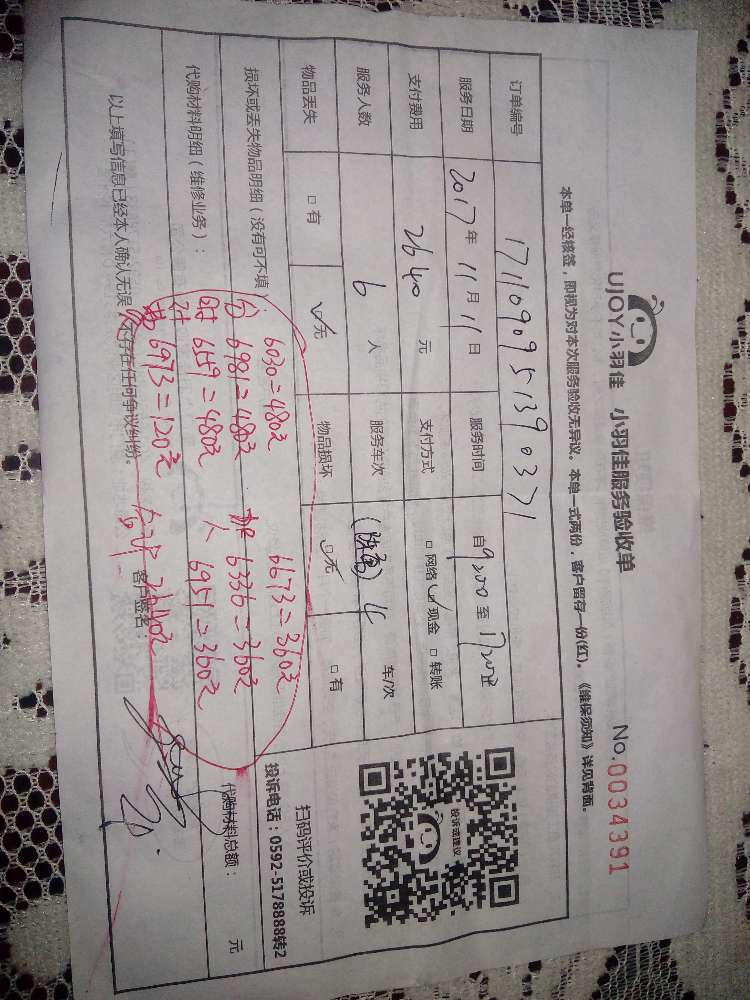 UJOY小羽佳 小羽佳服务验收单 No.0034391
本单一经核签，即视为对本次服务验收无异议。本单一式两份，客户留存一份(红)。《维保须知》详见背面。
订单编号 1711090951390371
服务日期 2017年11月11日 服务时间 自9:00至17:00
支付费用 2640元 支付方式 □网络 ☑现金 □转账
服务人数 6人 服务车次 车/次
物品丢失 □有 ☑无 物品损坏 ☑无 □有
投诉或建议
扫码评价或投诉
投诉电话：0592-5178888转2
损坏或丢失物品明细（没有可不填）
6030=480元 6673=360元
6981=480元 6336=360元
代购材料明细（维修业务）： 代购材料总额： 元
6159=480元 6951=360元
6973=120元 2640元
以上填写信息已经本人确认无误，不存在任何争议纠纷。 客户签名：